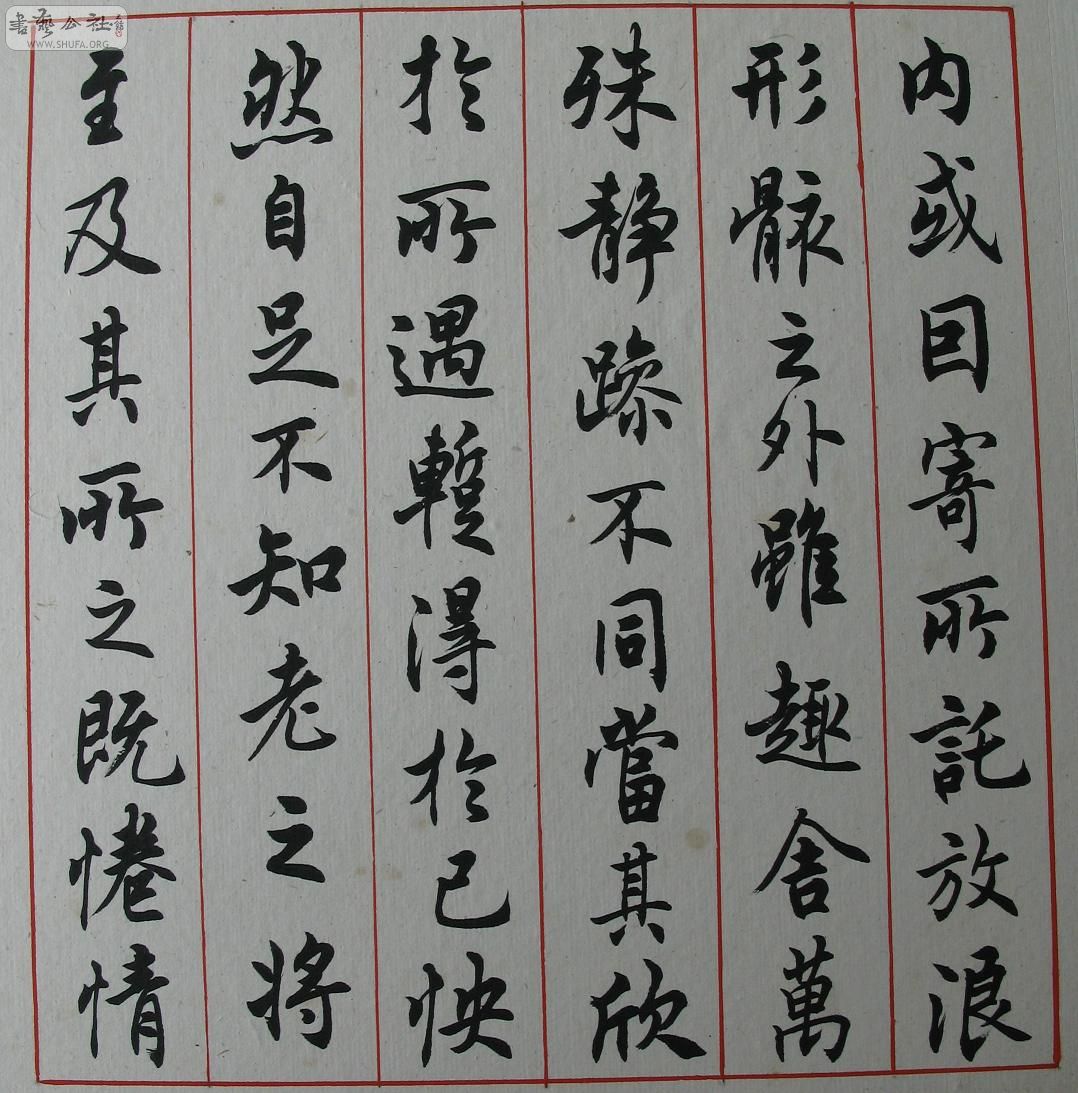 内或因寄所託放浪
形骸之外雖趣舍萬
殊静躁不同當其欣
於所遇蹔得於己怏
然自足不知老之將
至及其所之既惓情
書藝公社
WWW.SHUFA.ORG